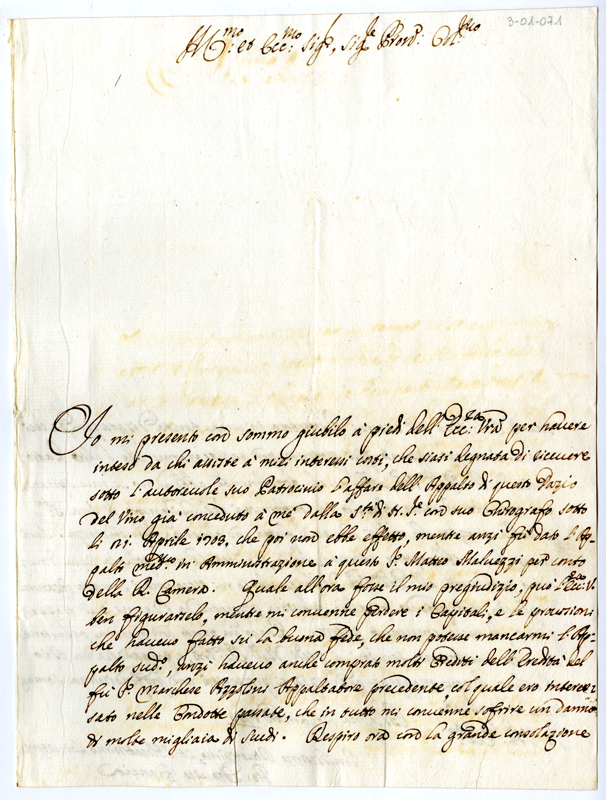 3-01-071
Ill.mo et Ecc.mo Sig.r, Sig.re Pron.e Col.mo
Io mi presento con sommo giubilo à piedi dell'Ecc.za Vrã per havere
inteso da chi assiste à miei interessi costi, che siasi degnata di ricevere
sotto l'autorevole suo Patrocinio l'affare dell'Appalto di questo Dazio
del Vino già conceduto à me dalla S.tà di N. S.re con suo Chirografo sotto
li 21. Aprile 1708, che poi non ebbe effetto, mentre anzi fu dato l'Ap-
palto med.mo in Amministrazione à questo S.r Matteo Maluezzi per conto
della R. Camera. Quale all'ora fosse il mio pregiudizio, può l'Ecc.za V.
ben figurarselo, mentre mi convenne perdere i Capitali, e le provisioni
che havevo fatto sù la buona fede, che non potesse mancarmi l'Ap-
palto sud.o, anzi havevo anche comprato molti Crediti dell'Eredità del
fù S.r Marchese Azzolini Appaltatore precedente, col quale ero interes-
sato nelle Condotte passate, che in tutto mi convenne soffrire un danno
di molte migliaia di scudi. Respiro ora con la grande consolazione